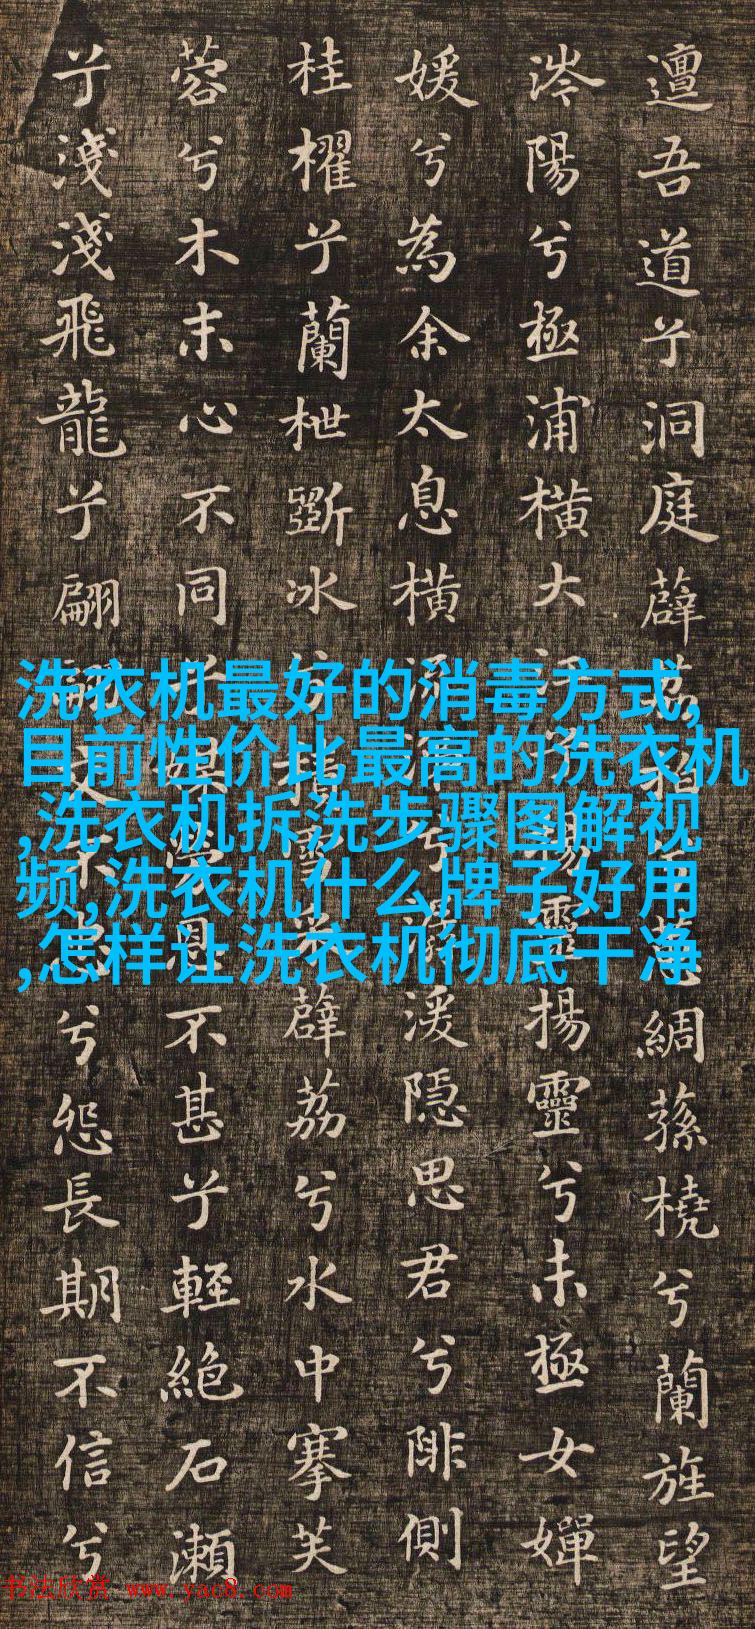 邅吾道兮洞庭薜荔柏兮蕙綢蓀橈兮蘭旌望
涔陽兮極浦橫大江兮揚靈揚靈兮未極女嬋
媛兮為余太息橫流涕兮潺湲隱思君兮陫側
桂櫂兮蘭枻斲冰兮積雪采薜荔兮水中搴芙
蓉兮木末心不同兮媒勞恩不甚兮輕絕石瀨
兮淺淺飛龍兮翩翩交不忠兮怨長期不信兮
洗衣机最好的消毒方式,
目前性价比最高的洗衣机
,洗衣机拆洗步骤图解视
频,洗衣机什么牌子好用
,怎样让洗衣机彻底干净
书法欣赏 www.yac8.com